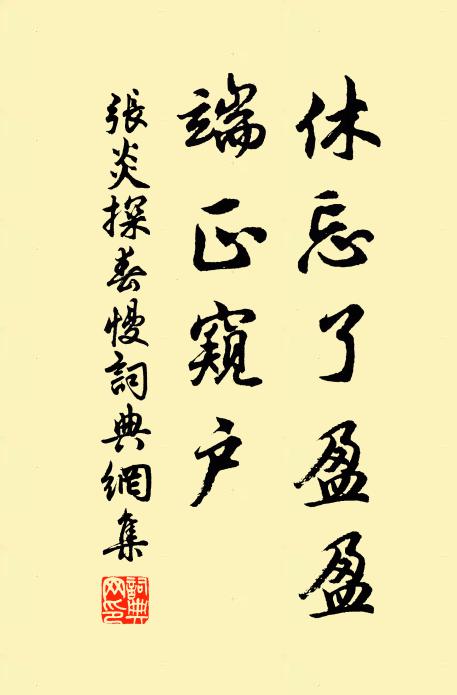 休忘了盈盈
端正窺户
張炎探春慢詞典網集
詞典網印